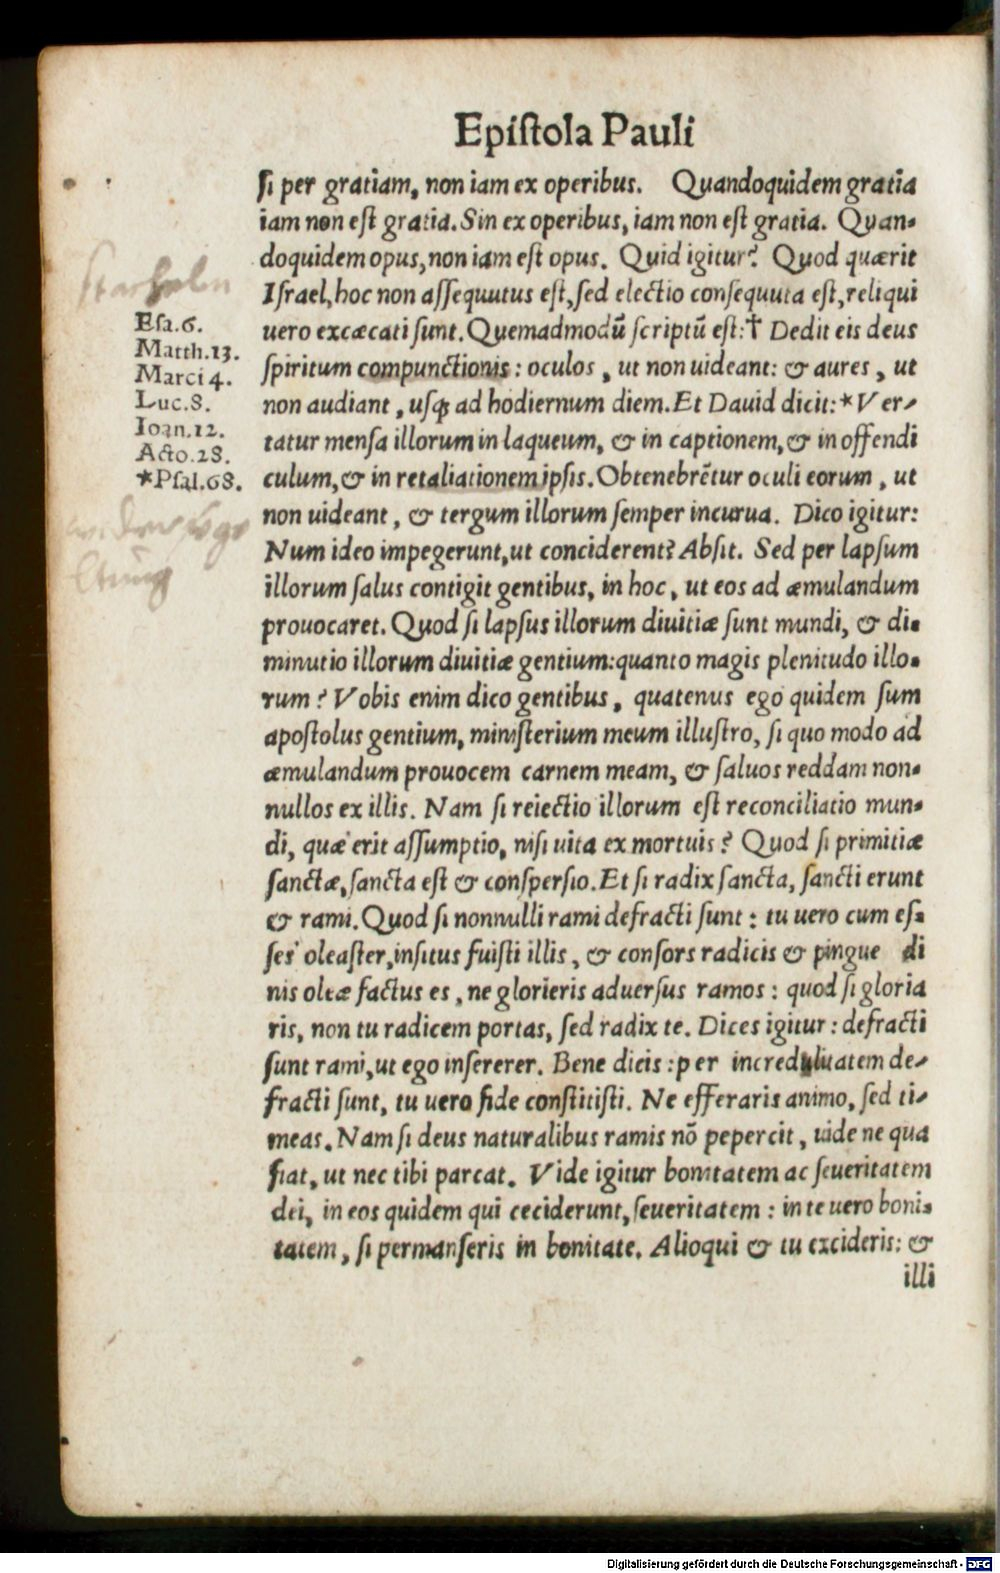 Epistola Pauli
si per gratiam, non iam ex operibus. Quandoquidem gratia
iam non est gratia. Sin ex operibus, iam non est gratia. Quan-
doquidem opus, non iam est opus. Quid igitur? Quod quærit
Israel, hoc non assequutus est, sed electio consequuta est, reliqui
uero excæcati sunt. Quemadmodũ scriptũ est:† Dedit eis deus
spiritum compunctionis: oculos, ut non uideant: & aures, ut
non audiant, usq; ad hodiernum diem. Et Dauid dicit:*Ver-
tatur mensa illorum in laqueum, & in captionem, & in offendi
culum, & in retaliationem ipsis. Obtenebrẽtur oculi eorum, ut
non uideant, & tergum illorum semper incurua. Dico igitur:
Num ideo impegerunt, ut conciderent? Absit. Sed per lapsum
illorum salus contigit gentibus, in hoc, ut eos ad æmulandum
prouocaret. Quod si lapsus illorum diuitiæ sunt mundi, & di-
minutio illorum diuitiæ gentium: quanto magis plenitudo illo-
rum? Vobis enim dico gentibus, quatenus ego quidem sum
apostolus gentium, ministerium meum illustro, si quo modo ad
æmulandum prouocem carnem meam, & saluos reddam non-
nullos ex illis. Nam si reiectio illorum est reconciliatio mun-
di, quæ erit assumptio, nisi uita ex mortuis? Quod si primitiæ
sanctæ, sancta est & conspersio. Et si radix sancta, sancti erunt
& rami. Quod si nonnulli rami defracti sunt: tu uero cum es-
ses oleaster, insitus fuisti illis, & consors radicis & pingue di
nis oleæ factus es, ne glorieris aduersus ramos: quod si gloria
ris, non tu radicem portas, sed radix te. Dices igitur: defracti
sunt rami, ut ego insererer. Bene dicis: per incredulitatem de-
fracti sunt, tu uero fide constitisti. Ne efferaris animo, sed ti-
meas. Nam si deus naturalibus ramis nõ pepercit, uide ne qua
fiat, ut nec tibi parcat. Vide igitur bonitatem ac seueritatem
dei, in eos quidem qui ceciderunt, seueritatem: in te uero boni-
tatem, si permanseris in bonitate. Alioqui & tu excideris: &
illi
Stachelen
Esa.6.
Matth.13.
Marci 4.
Luc.8.
Ioan.12.
Acto.28.
*Psal.68.
Digitalisierung gefördert durch die Deutsche Forschungsgemeinschaft - DFG